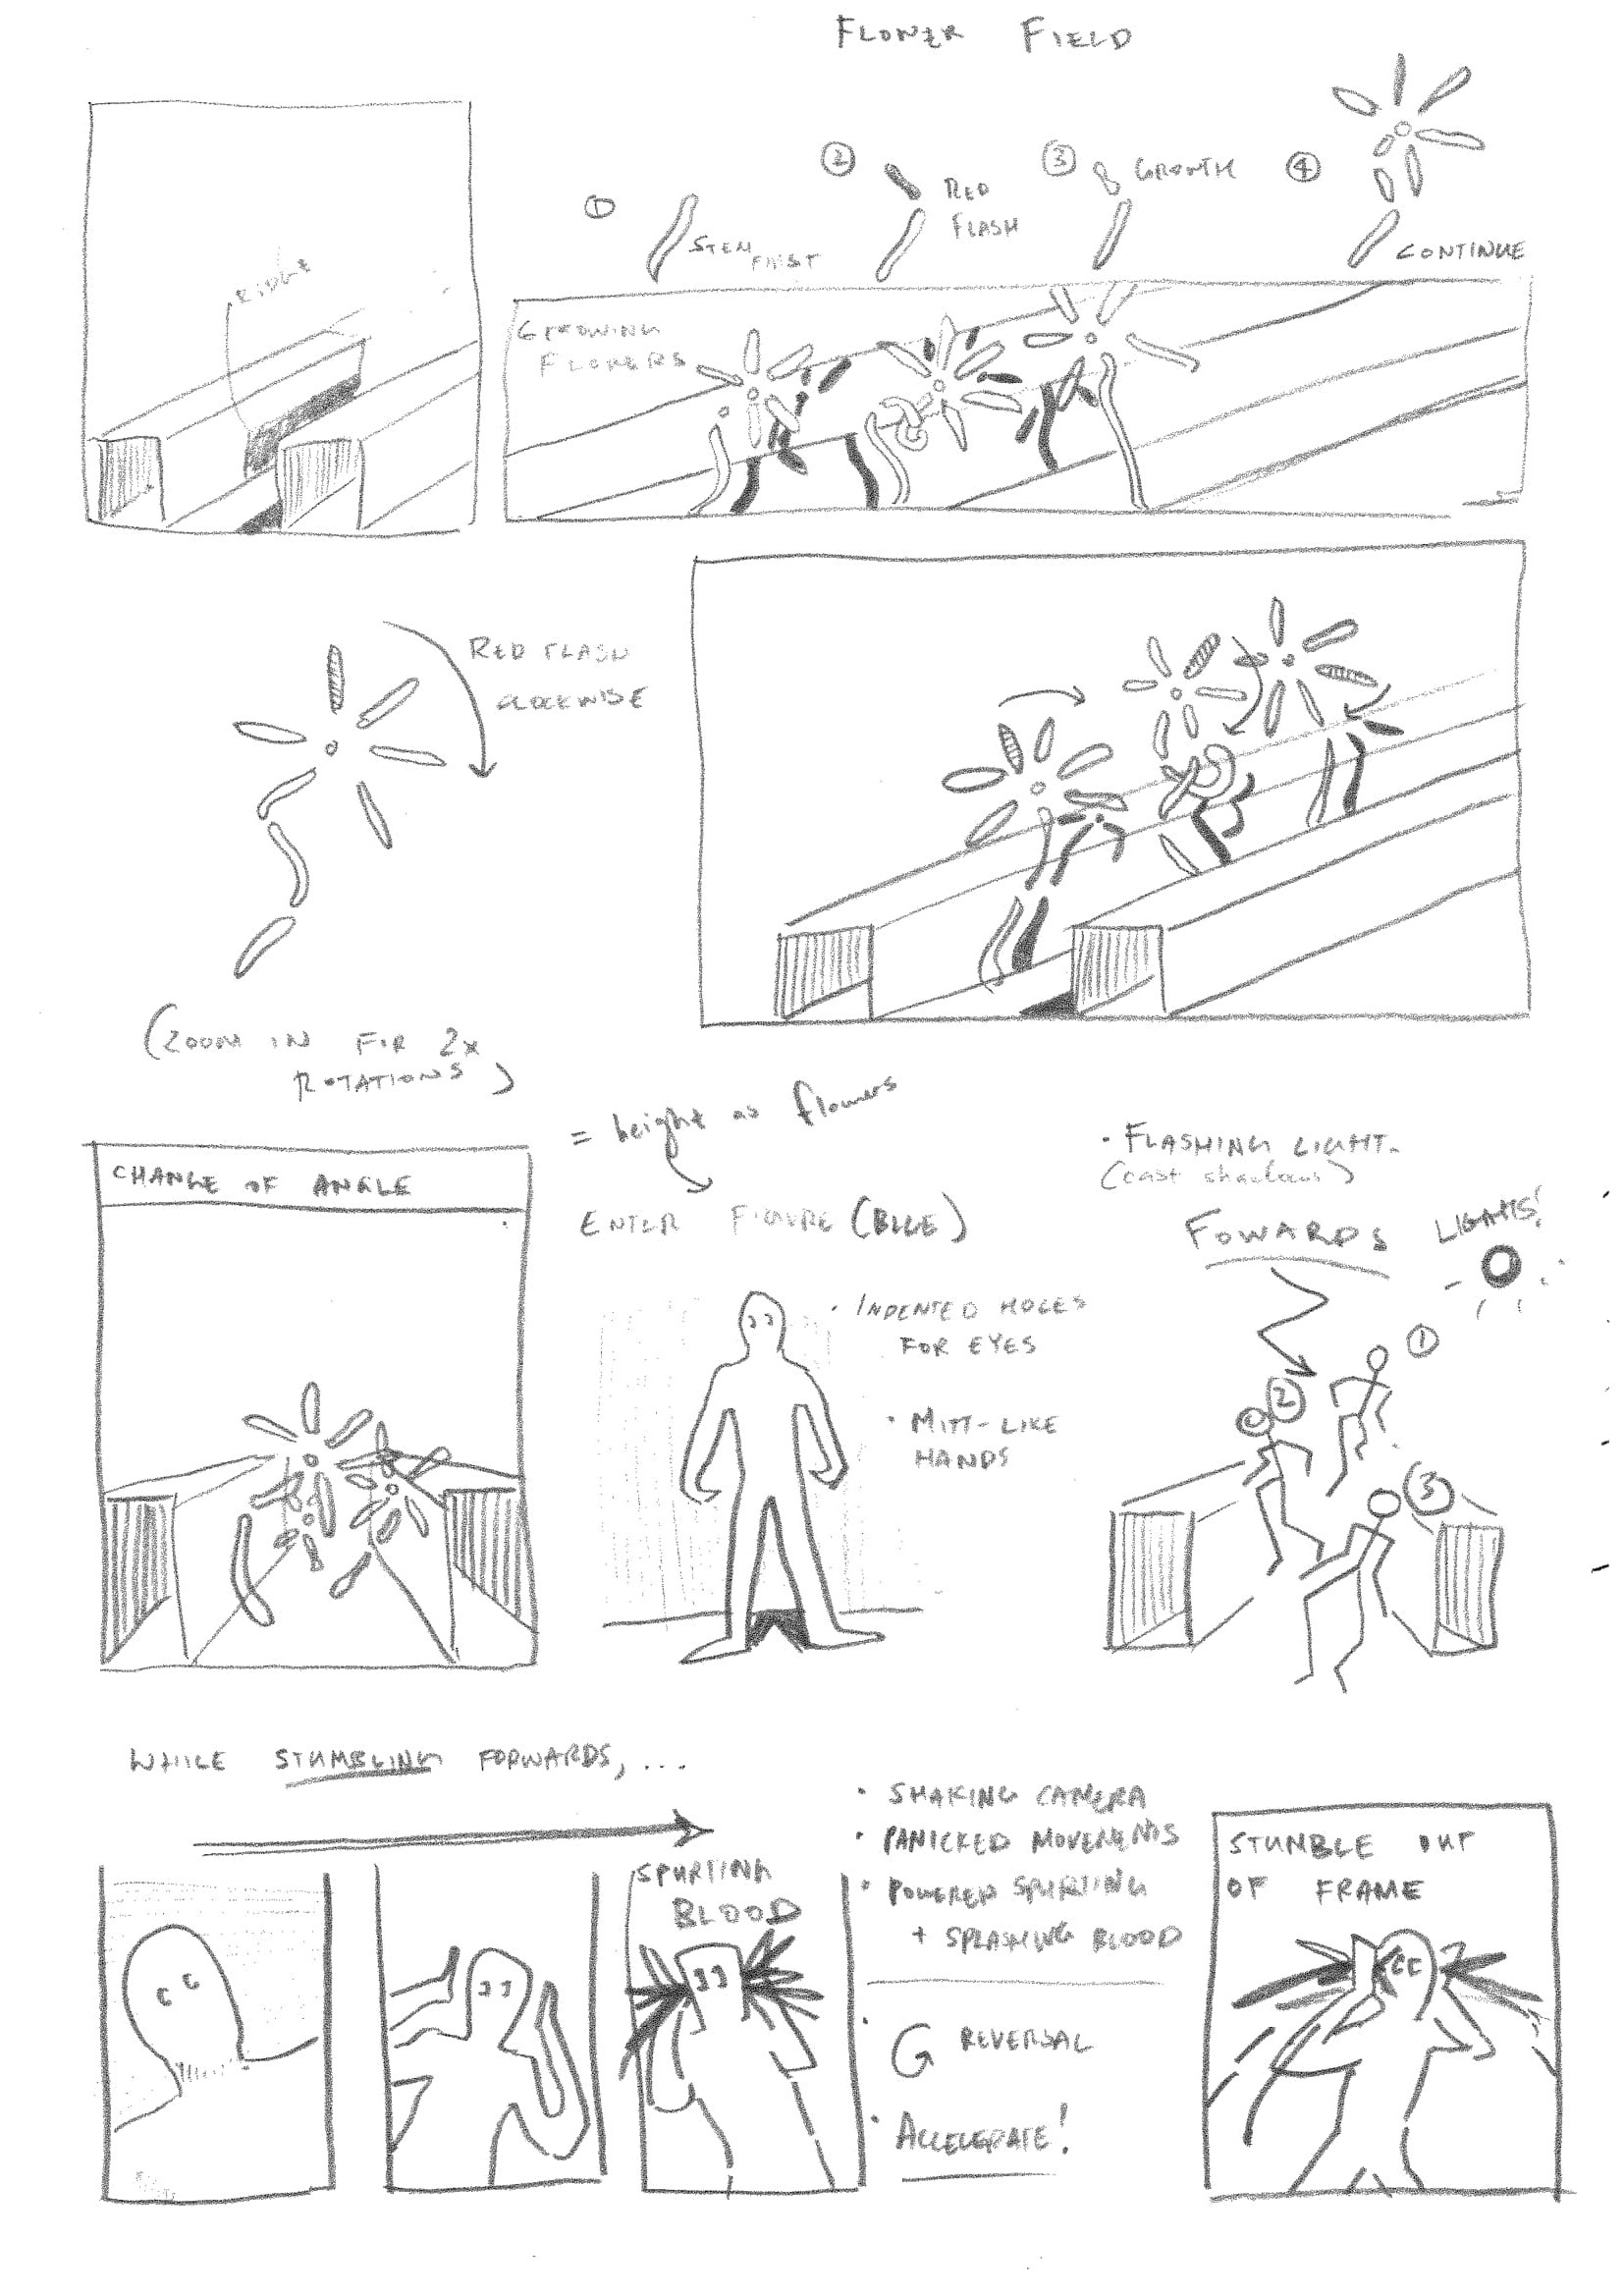 FLOWER FIELD
RIDGE
①
STEM
FIRST
②
RED
FLASH
③
GROWTH
④
CONTINUE
GROWING
FLOWERS
RED FLASH
CLOCKWISE
(ZOOM IN FOR 2x
ROTATIONS)
CHANGE OF ANGLE
= height as flowers
ENTER FIGURE (BLUE)
· INDENTED HOLES
FOR EYES
· MITT-LIKE
HANDS
· FLASHING LIGHT.
(cast shadows)
FOWARDS
LIGHTS!
①
②
③
WHILE STUMBLING FORWARDS, ...
SPURTING
BLOOD
· SHAKING CAMERA
· PANICKED MOVEMENTS
· POWERED SPURTING
+ SPLASHING BLOOD
· REVERSAL
· ACCELERATE!
STUMBLE OUT
OF FRAME